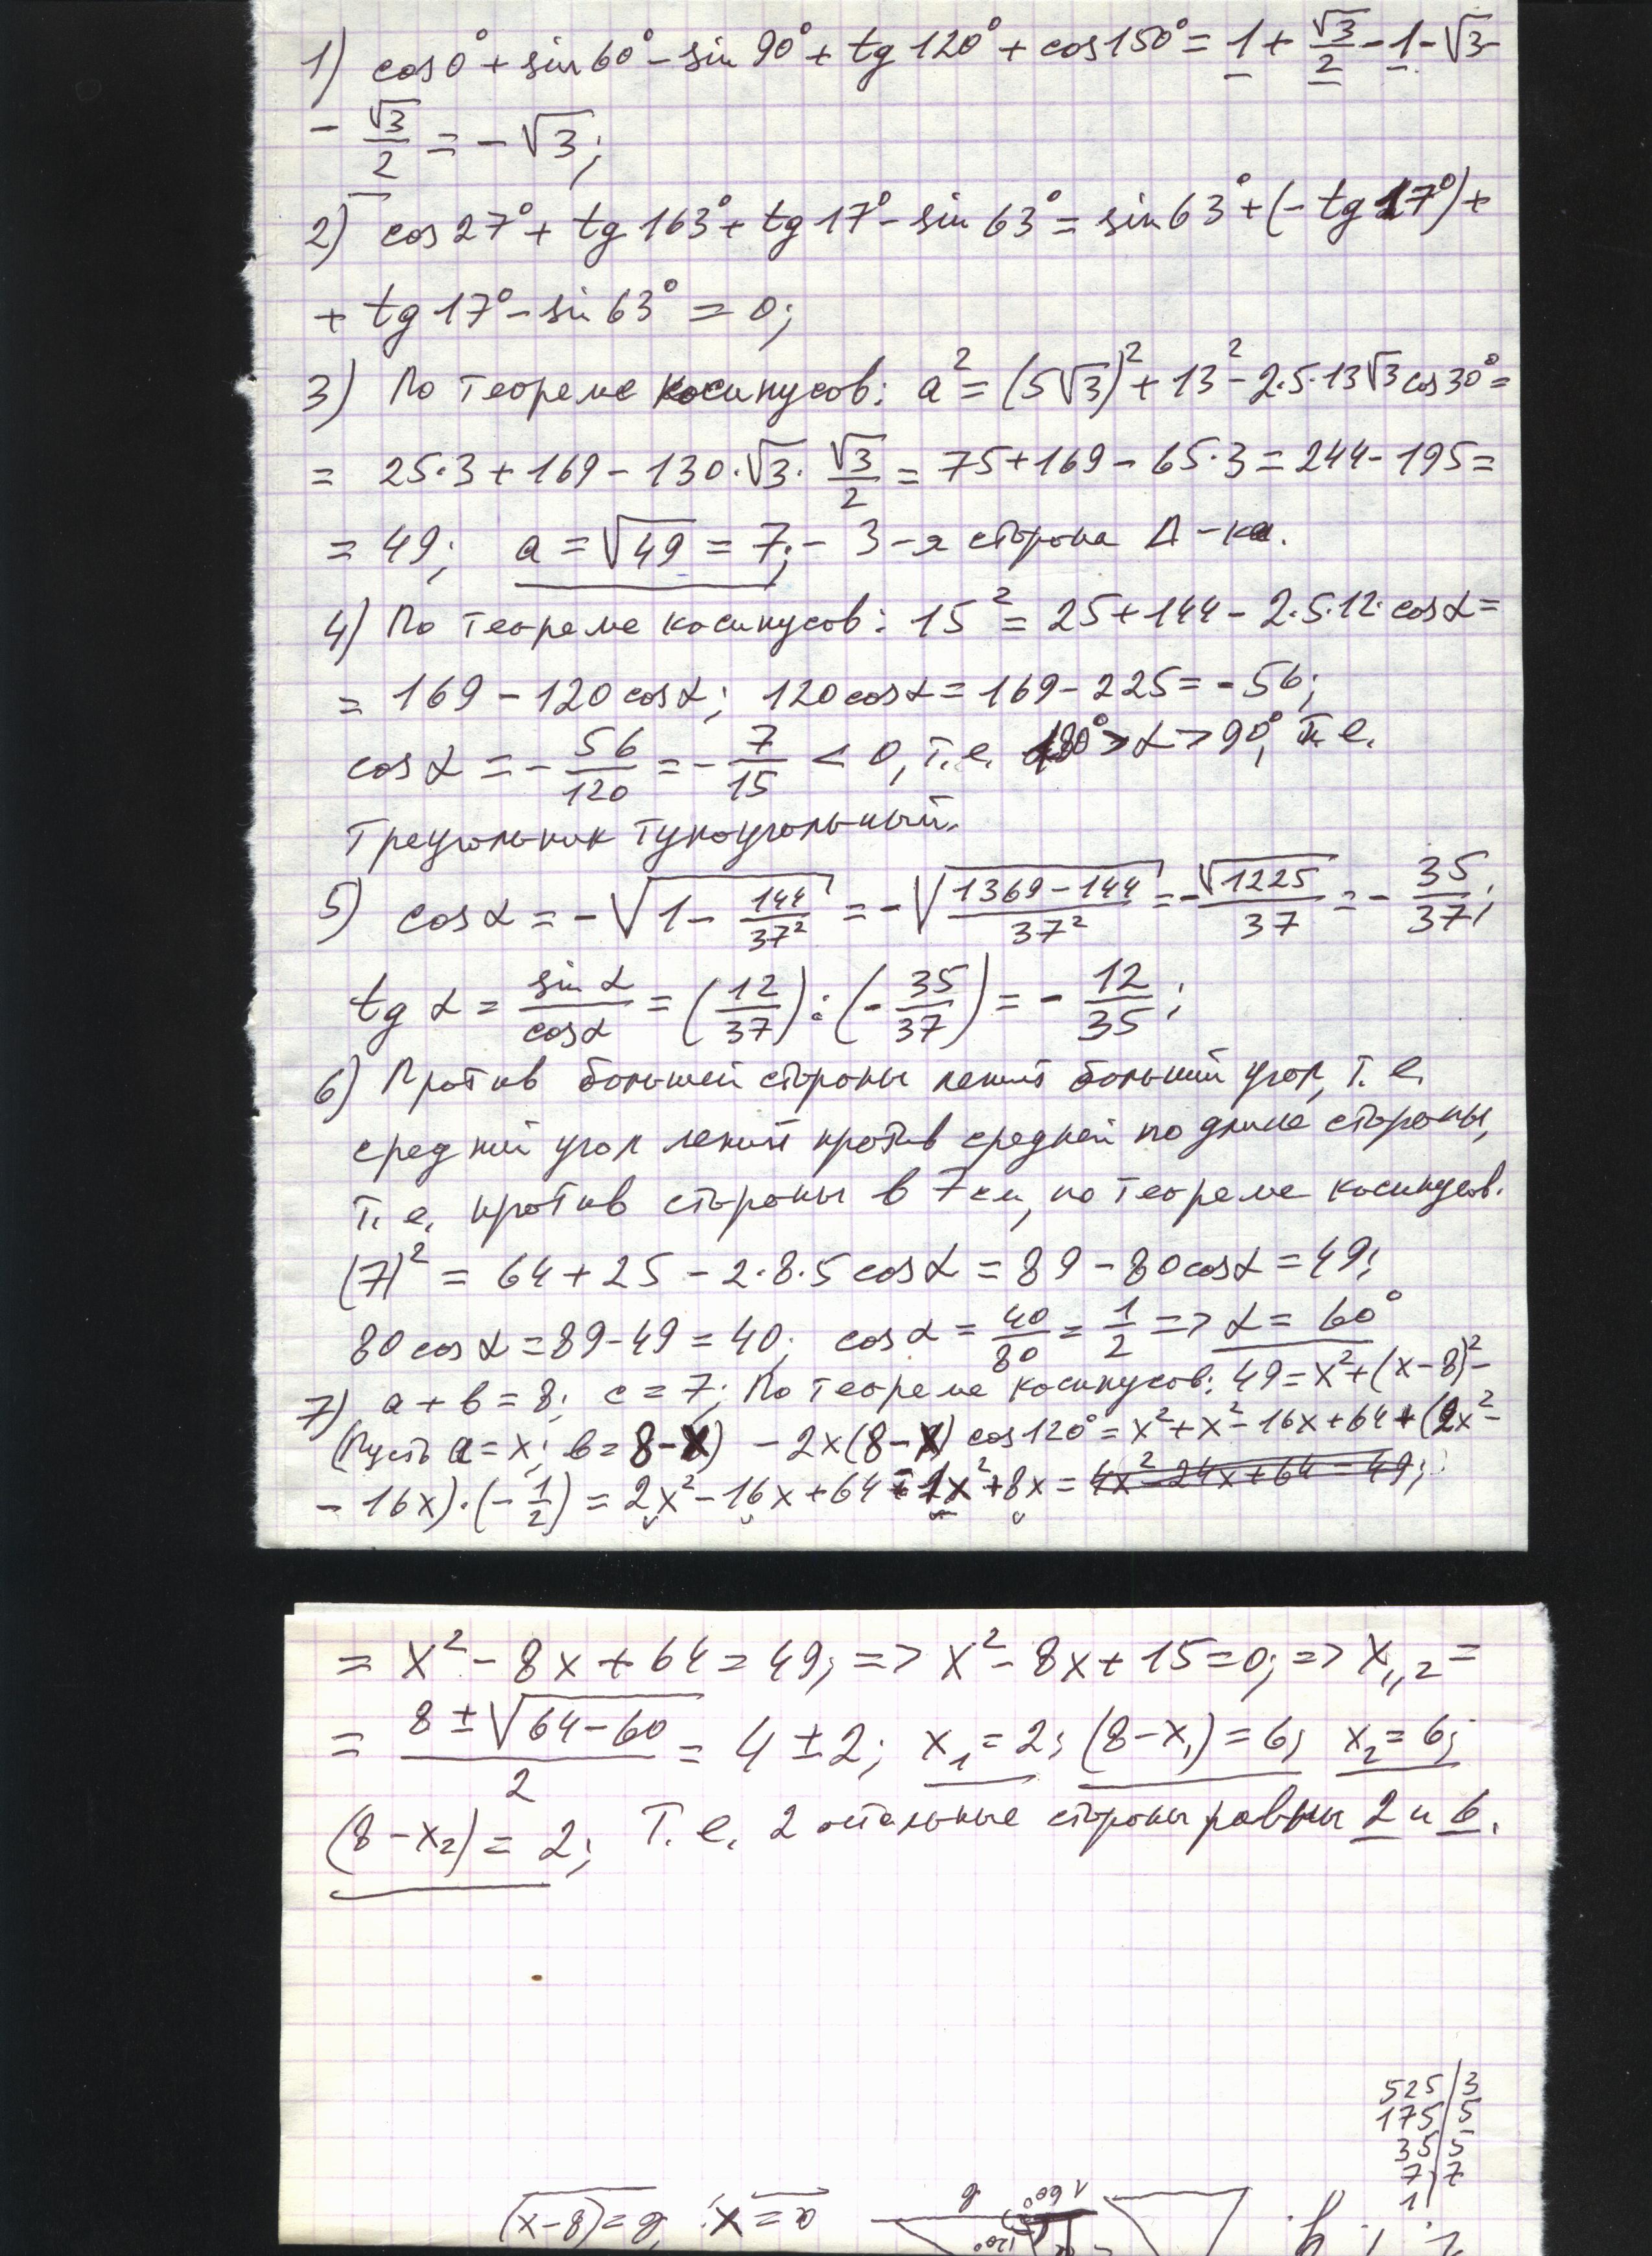 1) cos0° + sin60° - sin90° + tg120° + cos150° = 1 + √3/2 - 1 - √3 -
- √3/2 = -√3;
2) cos27° + tg163° + tg17° - sin63° = sin63° + (-tg17°) +
+ tg17° - sin63° = 0;
3) По теореме косинусов: a² = (5√3)² + 13² - 2·5·13√3 cos30° =
= 25·3 + 169 - 130·√3·√3/2 = 75 + 169 - 65·3 = 244 - 195 =
= 49; a = √49 = 7; - 3-я сторона Δ-ка.
4) По теореме косинусов: 15² = 25 + 144 - 2·5·12·cosα =
= 169 - 120cosα; 120cosα = 169 - 225 = -56;
cosα = -56/120 = -7/15 < 0, т.е. 180° > α > 90°, т.е.
треугольник тупоугольный.
5) cosα = -√(1 - 144/37²) = -√((1369-144)/37²) = -√1225/37 = -35/37;
tgα = sinα/cosα = (12/37):(-35/37) = -12/35;
6) Против большей стороны лежит больший угол, т.е.
средний угол лежит против средней по длине стороны,
т.е. против стороны в 7см, по теореме косинусов.
(7)² = 64 + 25 - 2·8·5cosα = 89 - 80cosα = 49;
80cosα = 89 - 49 = 40; cosα = 40/80 = 1/2 => α = 60°
7) a + b = 8; c = 7; По теореме косинусов: 49 = x² + (x-8)² -
(Пусть a = x; b = 8-x) - 2x(8-x) cos120° = x² + x² - 16x + 64 + (2x² -
- 16x)·(-1/2) = 2x² - 16x + 64 - 1x² + 8x = 4x² - 24x + 64 = 49;
= x² - 8x + 64 = 49; => x² - 8x + 15 = 0; => x₁,₂ =
= (8 ± √(64-60))/2 = 4 ± 2; x₁ = 2; (8-x₁) = 6; x₂ = 6;
(8-x₂) = 2; Т.е. 2 остальные стороны равны 2 и 6.
525|3
175|5
35|5
7|7
1|